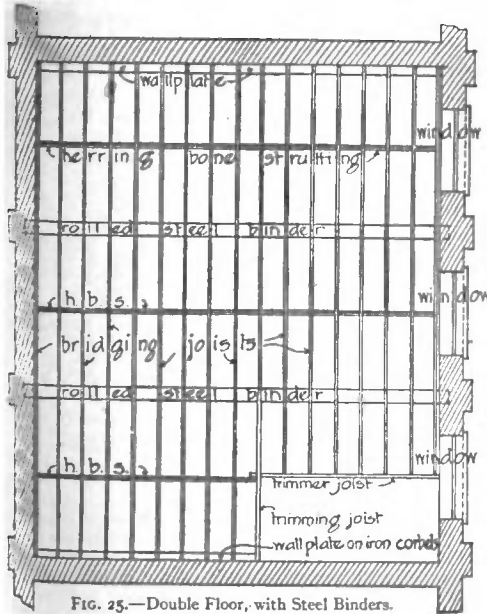 wallplate
window
herring bone strutting
rolled steel binder
window
h.b.s.
bridging joists
rolled steel binder
window
h.b.s.
trimmer joist
trimming joist
wall plate on iron corbels
FIG. 25.—Double Floor, with Steel Binders.